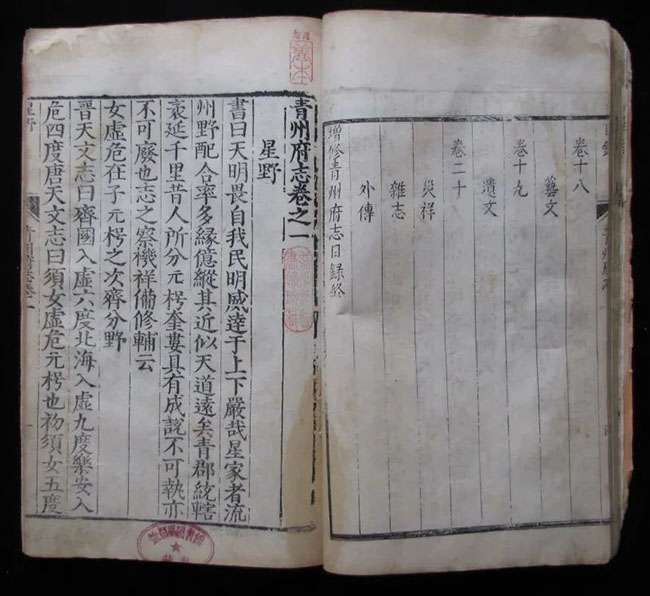 卷十八
藝文
卷十九
遺文
卷二十
災祥
雜志
外傳
增修青州府志目錄終
善本
青州府志卷之一
星野
書曰天明畏自我民明威達于上下嚴哉星家者流
州野配合率多緣億縱其近似天道遠矣青郡統轄
袤延千里昔人所分元枵奎婁具有成說不可執亦
不可廢也志之察機祥備修輔云
女虛危在子元枵之次齊分野
晉天文志曰齊國入虛六度北海入虛九度樂安入
危四度唐天文志曰須女虛危元枵也初須女五度
星野